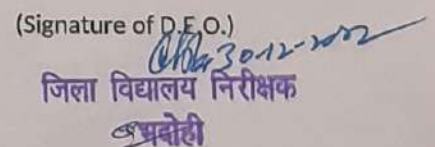 (Signature of D.E.O.)
30-12-2022
जिला विद्यालय निरीक्षक
भदोही